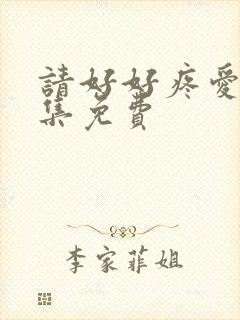 請好好疼愛
集免費
李家菲姐